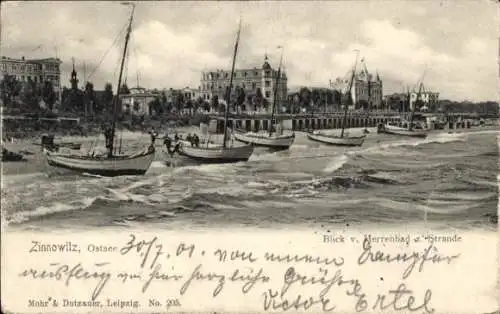 Blick v. Herrenbad z. Strande
Zinnowitz, Ostsee 30/7. 01. von unserem Dampfer
ausflug von hier herzliche Grüße
Mohr & Dutzauer, Leipzig. No. 205. Victor Ertel